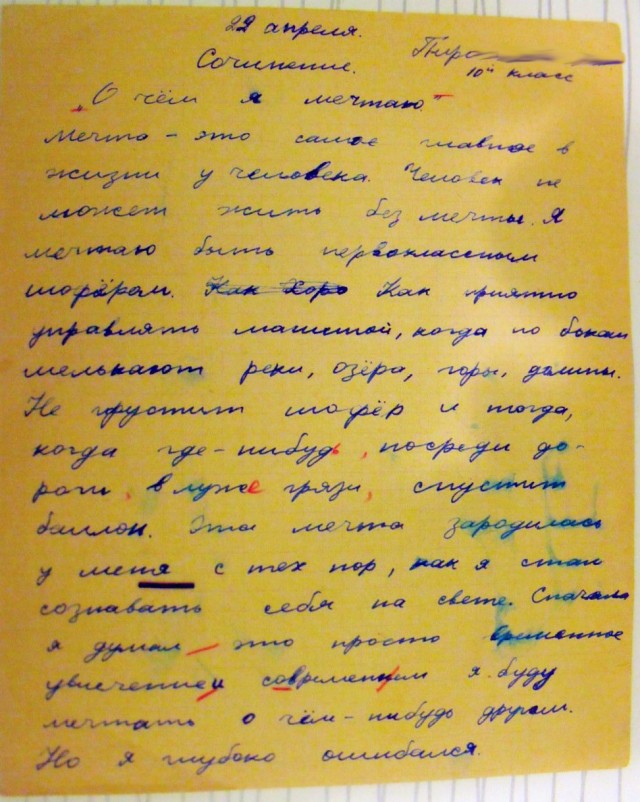 22 апреля.
Сочинение.
10й класс
„О чём я мечтаю"
Мечта – это самое главное в
жизни у человека. Человек не
может жить без мечты. Я
мечтаю быть первоклассным
шофёром. Как Хоро Как приятно
управлять машиной, когда по бокам
мелькают реки, озёра, горы, долины.
Не грустит шофёр и тогда,
когда где-нибудь, посреди до-
роги, в луже грязи, спустит
баллон. Эта мечта зародилась
у меня с тех пор, как я стал
сознавать себя на свете. Сначала
я думал – это просто временное
увлечение и современем я буду
мечтать о чём-нибудь другом.
Но я глубоко ошибался.